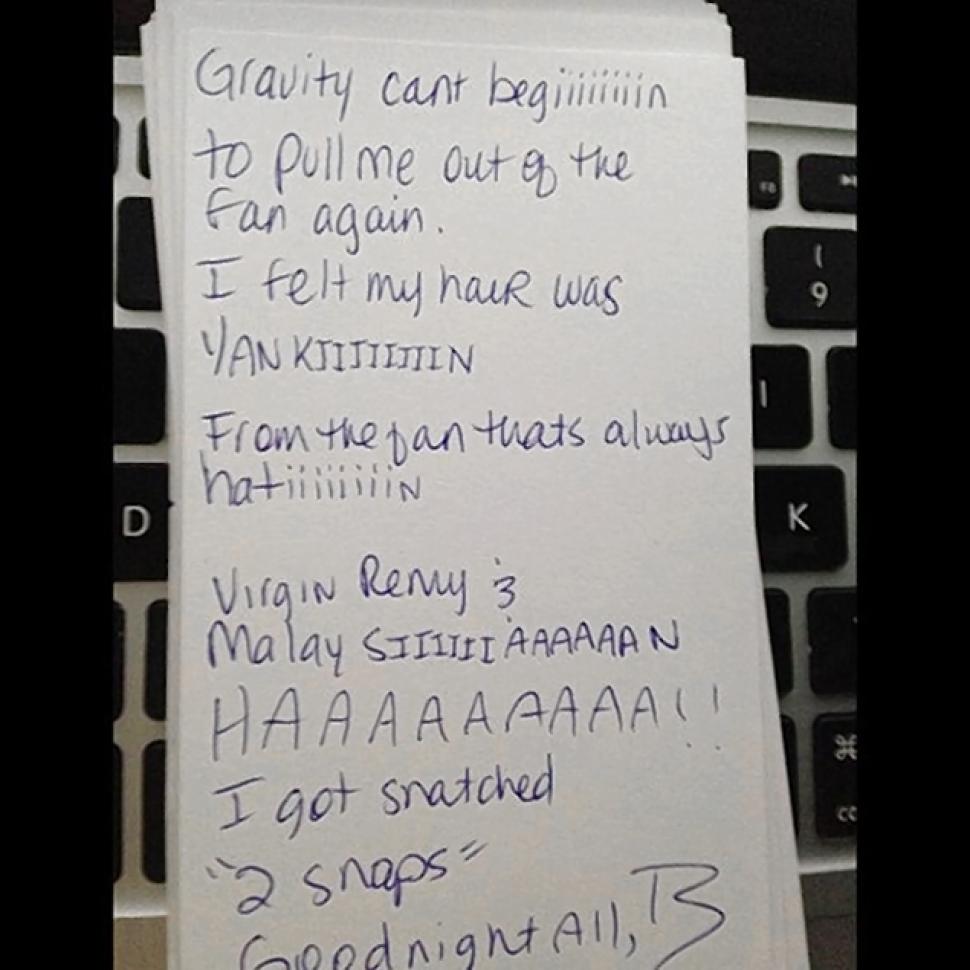 Gravity cant begiiiiiiiin
to pull me out of the
Fan again.
I felt my haiR was
YANKIIIIIIIIN
From the fan thats always
hatiiiiiiiiiN
Virgin Remy &
Malay SIIIIIIAAAAAAN
HAAAAAAAAA!!
I got snatched
"2 snaps"
Goodnight All, B
F8
(
9
I
D
K
⌘